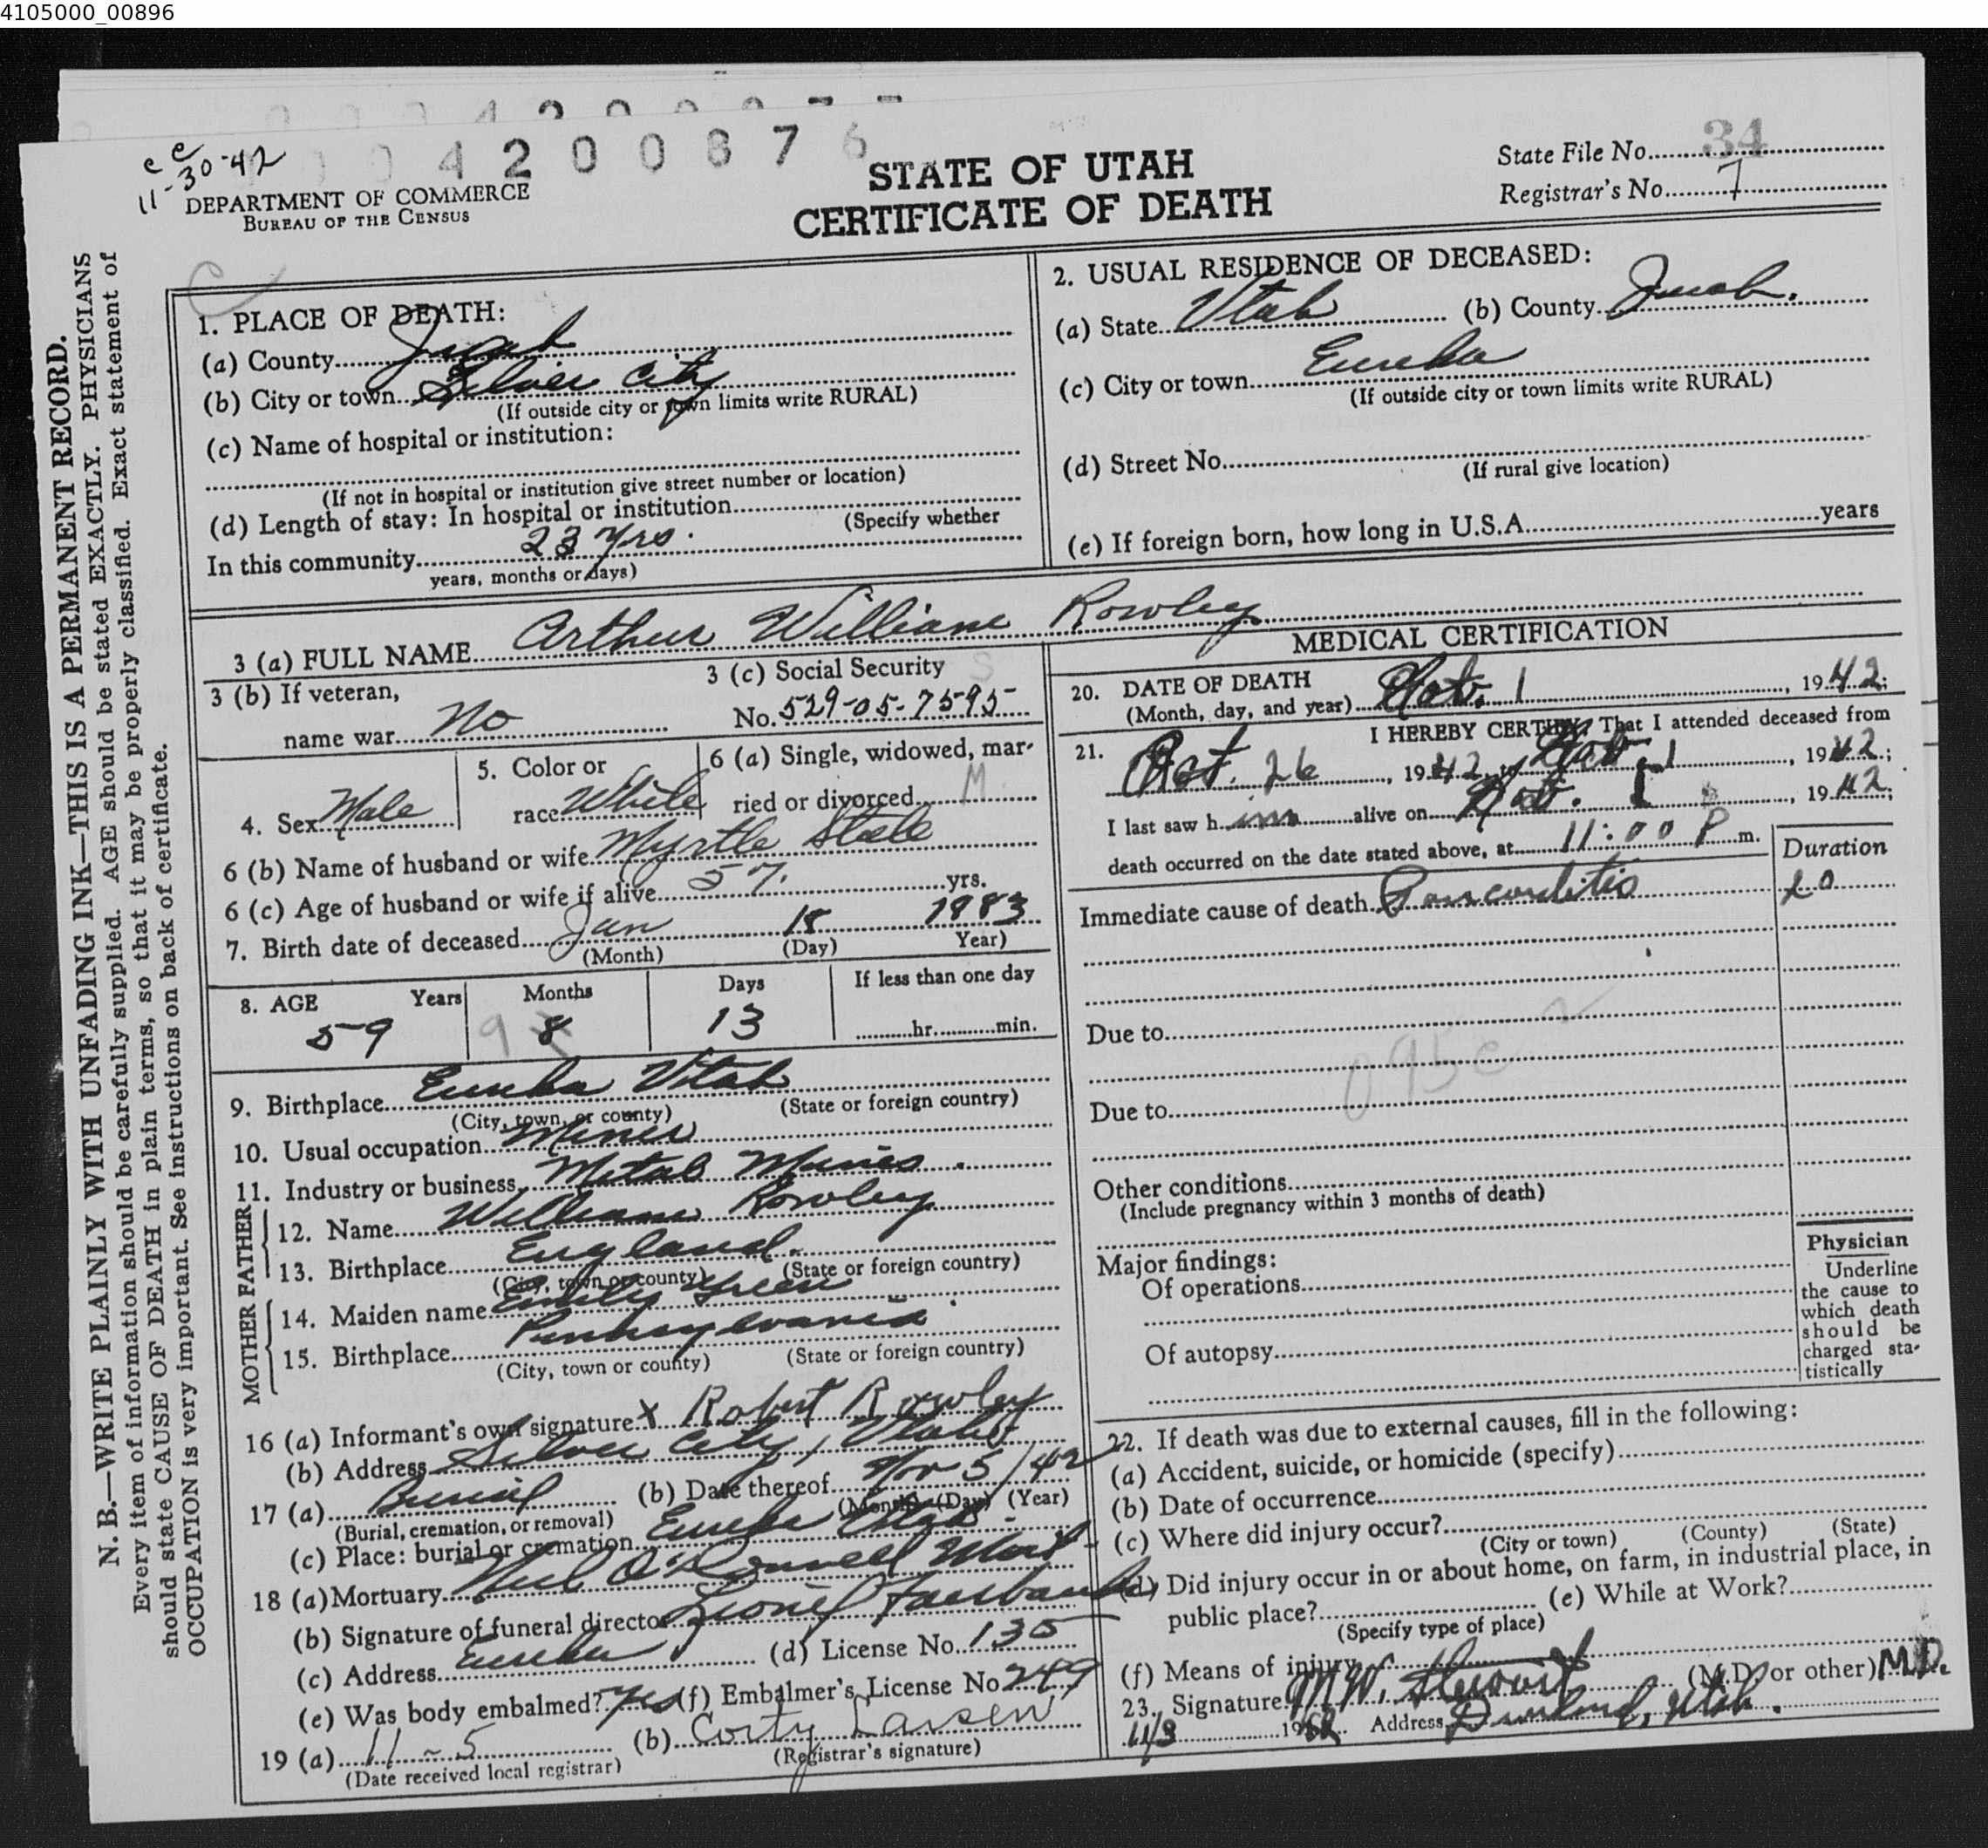 4105000_00896
c e
11-30-42
4 2 0 0 8 7 6
DEPARTMENT OF COMMERCE
BUREAU OF THE CENSUS
STATE OF UTAH
CERTIFICATE OF DEATH
State File No. 34
Registrar's No. 7
N. B.—WRITE PLAINLY WITH UNFADING INK—THIS IS A PERMANENT RECORD.
Every item of information should be carefully supplied. AGE should be stated EXACTLY. PHYSICIANS
should state CAUSE OF DEATH in plain terms, so that it may be properly classified. Exact statement of
OCCUPATION is very important. See instructions on back of certificate.
1. PLACE OF DEATH:
(a) County Juab
(b) City or town Silver City
(If outside city or town limits write RURAL)
(c) Name of hospital or institution:
(If not in hospital or institution give street number or location)
(d) Length of stay: In hospital or institution
(Specify whether
In this community 23 yrs.
years, months or days)
2. USUAL RESIDENCE OF DECEASED:
(a) State Utah (b) County Juab.
(c) City or town Eureka
(If outside city or town limits write RURAL)
(d) Street No.
(If rural give location)
(e) If foreign born, how long in U.S.A. years
3 (a) FULL NAME Arthur William Rowley
3 (b) If veteran,
name war No
3 (c) Social Security
No. 529-05-7595
4. Sex Male
5. Color or
race White
6 (a) Single, widowed, mar-
ried or divorced M
6 (b) Name of husband or wife Myrtle Steele
6 (c) Age of husband or wife if alive 57. yrs.
7. Birth date of deceased Jan 18 1883
(Month) (Day) Year)
8. AGE Years Months Days If less than one day
59 9 8 13 hr. min.
9. Birthplace Eureka Utah
(City, town, or county) (State or foreign country)
10. Usual occupation Miner
11. Industry or business Metal Mines.
FATHER
12. Name William Rowley
13. Birthplace England.
(City, town or county) (State or foreign country)
MOTHER
14. Maiden name Emily Green
15. Birthplace Pennsylvania
(City, town or county) (State or foreign country)
16 (a) Informant's own signature x Robert Rowley
(b) Address Silver City, Utah
17 (a) Burial (b) Date thereof Nov 5/42
(Burial, cremation, or removal) (Month) (Day) (Year)
(c) Place: burial or cremation Eureka Utah
18 (a) Mortuary Neil O'Donnell Mort-
(b) Signature of funeral director Lionel Fairbanks
(c) Address Eureka (d) License No. 135
(e) Was body embalmed? Yes (f) Embalmer's License No 249
19 (a) 11-5 (b) Corty Larsen
(Date received local registrar) (Registrar's signature)
MEDICAL CERTIFICATION
20. DATE OF DEATH
(Month, day, and year) Nov. 1, 1942;
21. I HEREBY CERTIFY, That I attended deceased from
Oct. 26, 1942, to Nov 1, 1942;
I last saw him alive on Nov. 1, 1942;
death occurred on the date stated above, at 11:00 P m.
Duration
Immediate cause of death
Due to
095c
Due to
Other conditions
(Include pregnancy within 3 months of death)
Major findings:
Of operations
Of autopsy
Physician
Underline
the cause to
which death
should be
charged sta-
tistically
22. If death was due to external causes, fill in the following:
(a) Accident, suicide, or homicide (specify)
(b) Date of occurrence
(c) Where did injury occur?
(City or town) (County) (State)
(d) Did injury occur in or about home, on farm, in industrial place, in
public place? (e) While at Work?
(Specify type of place)
(f) Means of injury
23. Signature M.W. Stewart (M.D. or other) M.D.
11/3 1942 Address Utah.